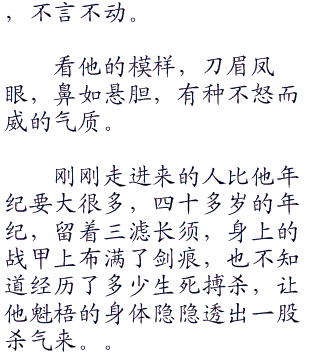 ，不言不动。
看他的模样，刀眉凤
眼，鼻如悬胆，有种不怒而
威的气质。
刚刚走进来的人比他年
纪要大很多，四十多岁的年
纪，留着三滤长须，身上的
战甲上布满了剑痕，也不知
道经历了多少生死搏杀，让
他魁梧的身体隐隐透出一股
杀气来。。